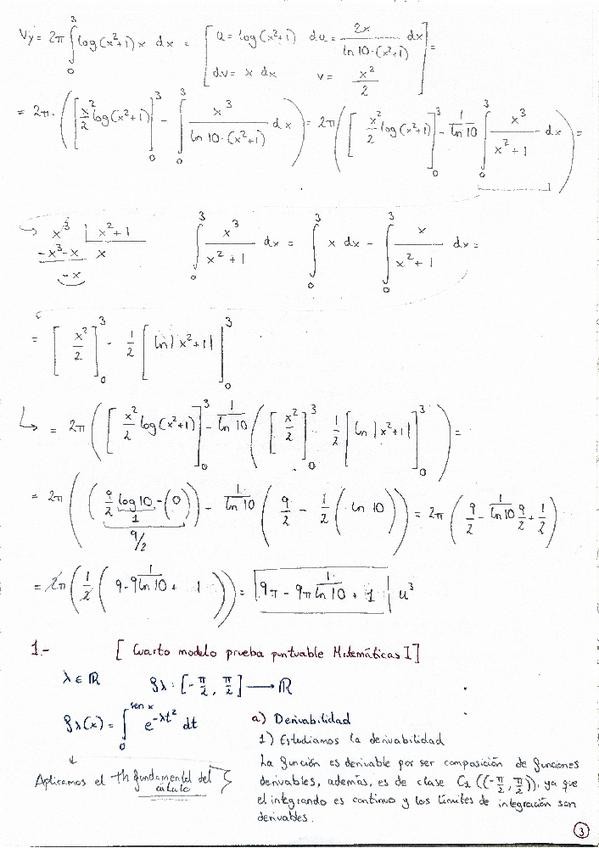 Vy = 2π ∫₀³ log(x²+1) x dx = [ u = log(x²+1) du = 2x / (ln 10·(x²+1)) dx
dv = x dx v = x²/2 ] =
= 2π·([x²/2 log(x²+1)]₀³ - ∫₀³ x³ / (ln 10·(x²+1)) dx) = 2π([x²/2 log(x²+1)]₀³ - 1/ln 10 ∫₀³ x³/(x²+1) dx) =
x³ | x²+1 ∫₀³ x³/(x²+1) dx = ∫₀³ x dx - ∫₀³ x/(x²+1) dx =
-x³-x x
-x
= [x²/2]₀³ - 1/2 [ln|x²+1|]₀³
= 2π([x²/2 log(x²+1)]₀³ - 1/ln 10 ([x²/2]₀³ 1/2 [ln|x²+1|]₀³) =
= 2π((9/2 log 10 - (0)) - 1/ln 10 (9/2 - 1/2 (ln 10))) = 2π(9/2 - 1/ln 10 9/2 + 1/2)
1
9/2
= 2π(1/2 (9 - 9 1/ln 10 + 1)) = 9π - 9π 1/ln 10 + 1 | u³
1.- [Cuarto modelo prueba puntuable Matemáticas I]
λ ∈ ℝ gλ: [-π/2, π/2] → ℝ
gλ(x) = ∫₀^(sen x) e^(-λt²) dt
a) Derivabilidad
1) Estudiamos la derivabilidad
Aplicamos el th fundamental del
cálculo
La función es derivable por ser composición de funciones
derivables, además, es de clase C₁((-π/2, π/2)), ya que
el integrando es continuo y los límites de integración son
derivables.
3